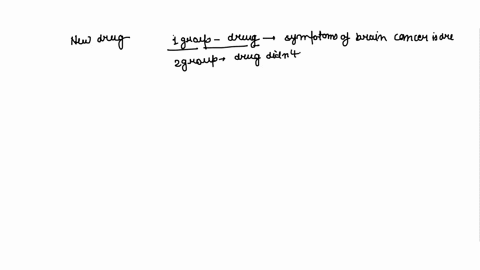 New drug 1 group - drug → symptoms of brain cancer is are
2 group → drug didn't